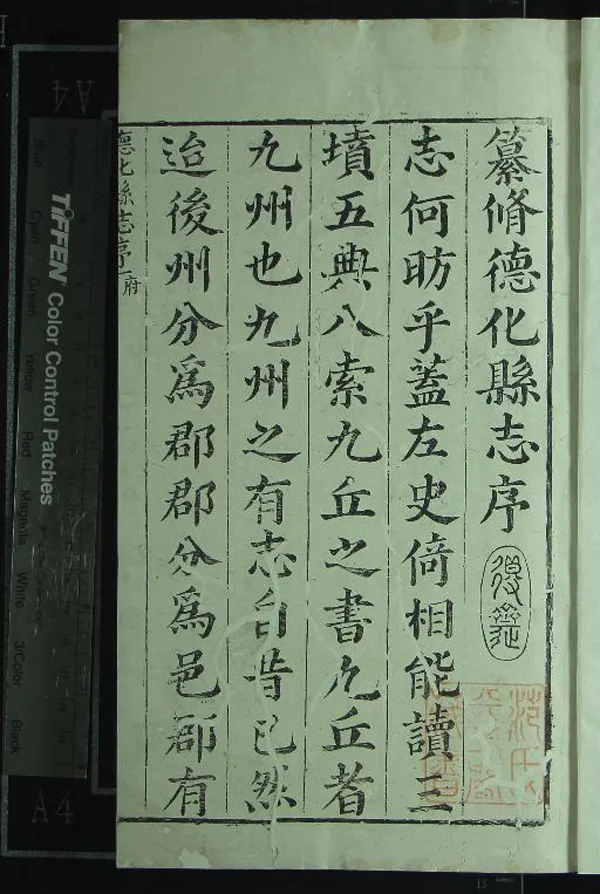 纂脩德化縣志序
志何昉乎蓋左史倚相能讀三
墳五典八索九丘之書九丘者
九州也九州之有志自昔已然
迨後州分爲郡郡分爲邑郡有
德化縣志序 府
TIFFEN Color Control Patches
Blue Cyan Green Yellow Red Magenta White 3/Color Black
A4
A4